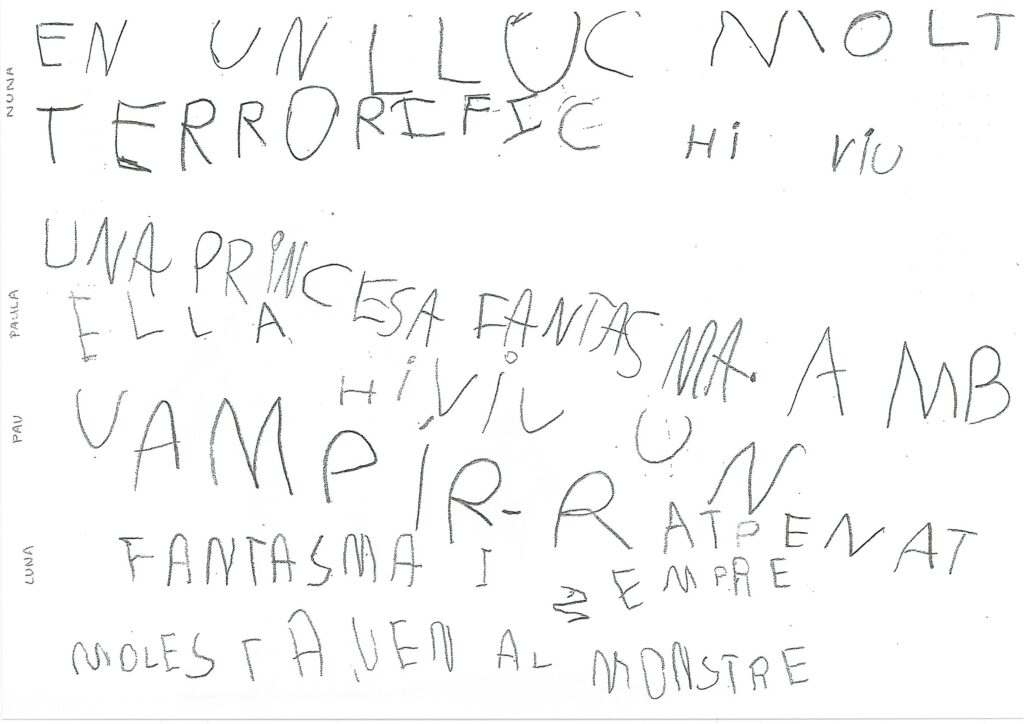 EN UN LLOC MOLT
TERRORIFIC HI VIU
UNA PRINCESA FANTASMA.
ELLA HI VIU AMB UN
VAMPIR-RATPENAT
FANTASMA I SEMPRE
MOLESTAVEN AL MONSTRE
NUNA
PAULA
PAU
LUNA